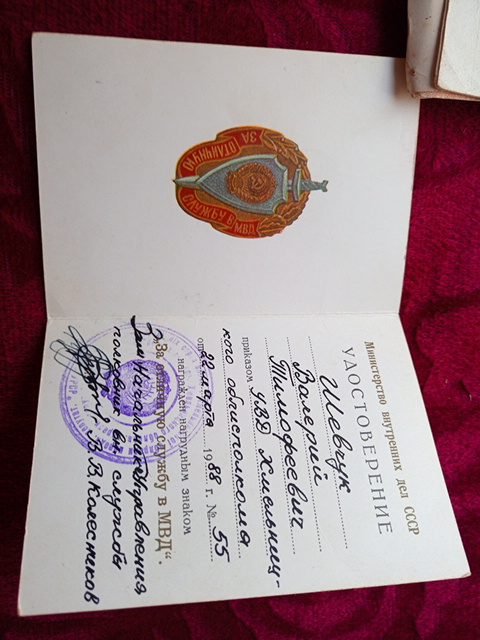 ЗА
ОТЛИЧНУЮ
СЛУЖБУ В МВД
Министерство внутренних дел СССР
УДОСТОВЕРЕНИЕ
Шевчук
Валерий
Тимофеевич
приказом УВД Хмельниц-
кого облисполкома
от 22 марта 1988 г. № 55
награжден нагрудным знаком
„За отличную службу в МВД“.
Зам. Начальника Управления
полковник вн. службы
В.В. Колесников